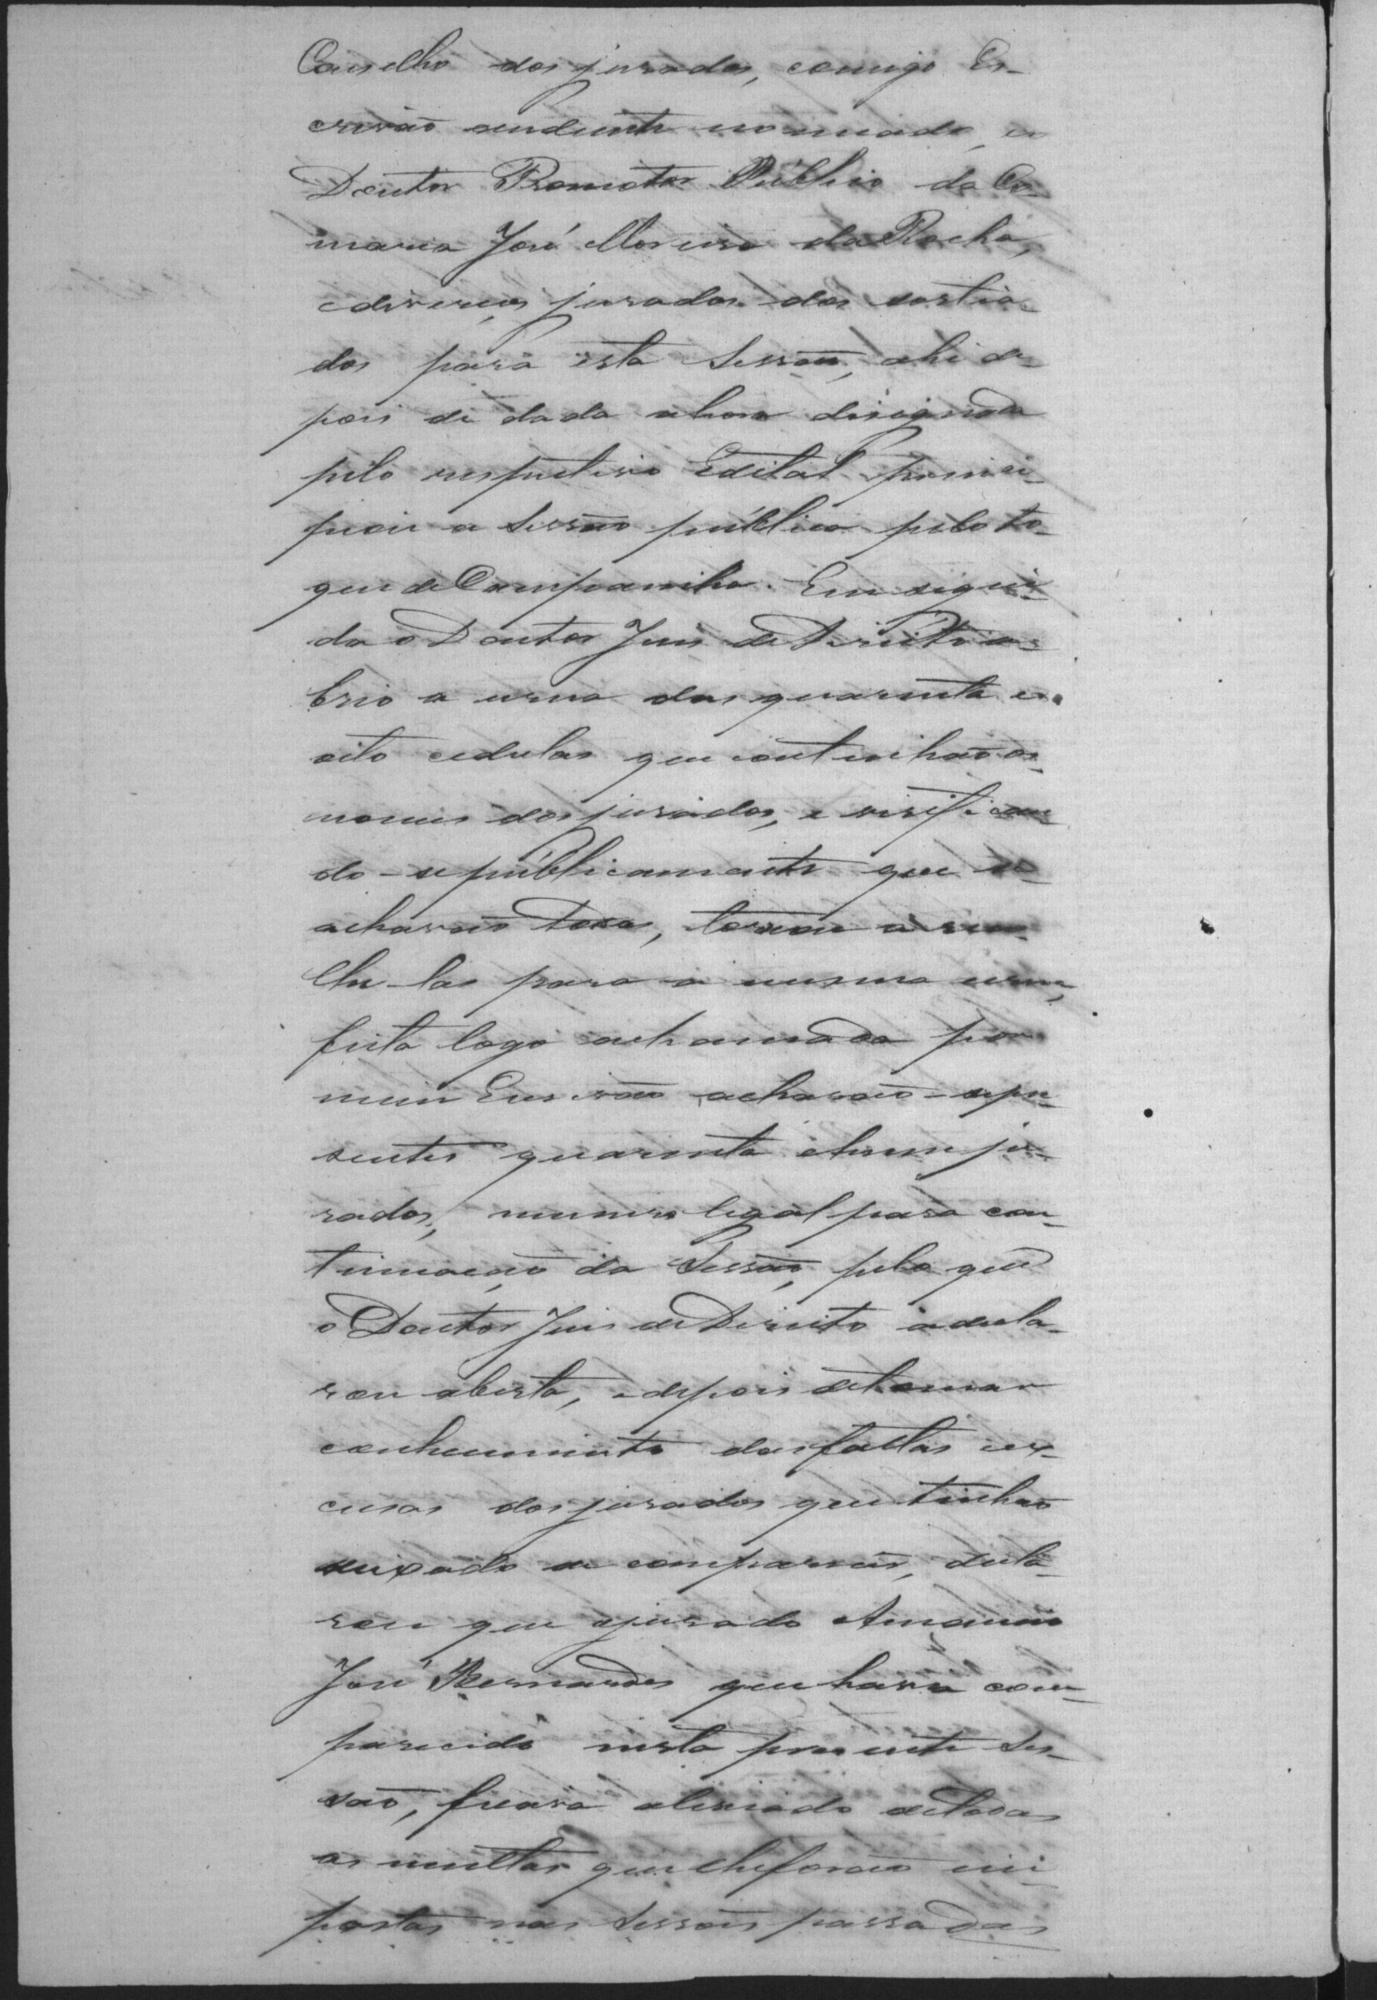 Conselho dos jurados, comigo Es-
crivão audiante nomiado, o
Doutor Promotor Público da Co-
marca José Moreira da Rocha,
e diversos jurados dos sortia-
dos para esta Sessão, ahi de-
pois de dada a hora designada
pelo respectivo Edital princi-
piou a Sessão pública pelo to-
que de Campainha. Em segui-
da o Doutor Juis de Direito a-
brio a urna das quarenta e
oito cedulas que continhão os
nomes dos jurados, e verifican-
do-se públicamente que se
acharão todas, tornou a reco-
lhe-las para a mesma urna,
feita logo a chamada por
mim Escrivão acharão-se pre-
sentes quarenta e hum ju-
rados, numero legal para con-
tinuação da Sessão, pelo que
o Doutor Juis de Direito a decla-
rou aberta, e depois de tomar
conhecimento das faltas e es-
cusas dos jurados que tinhão
deixado de comparecer, decla-
rou que o jurado Amancio
José Bernardes que havia com-
parecido nesta presente Ses-
são, ficava aliviado de todas
as multas que lhe forão im-
postas nas Sessões passadas